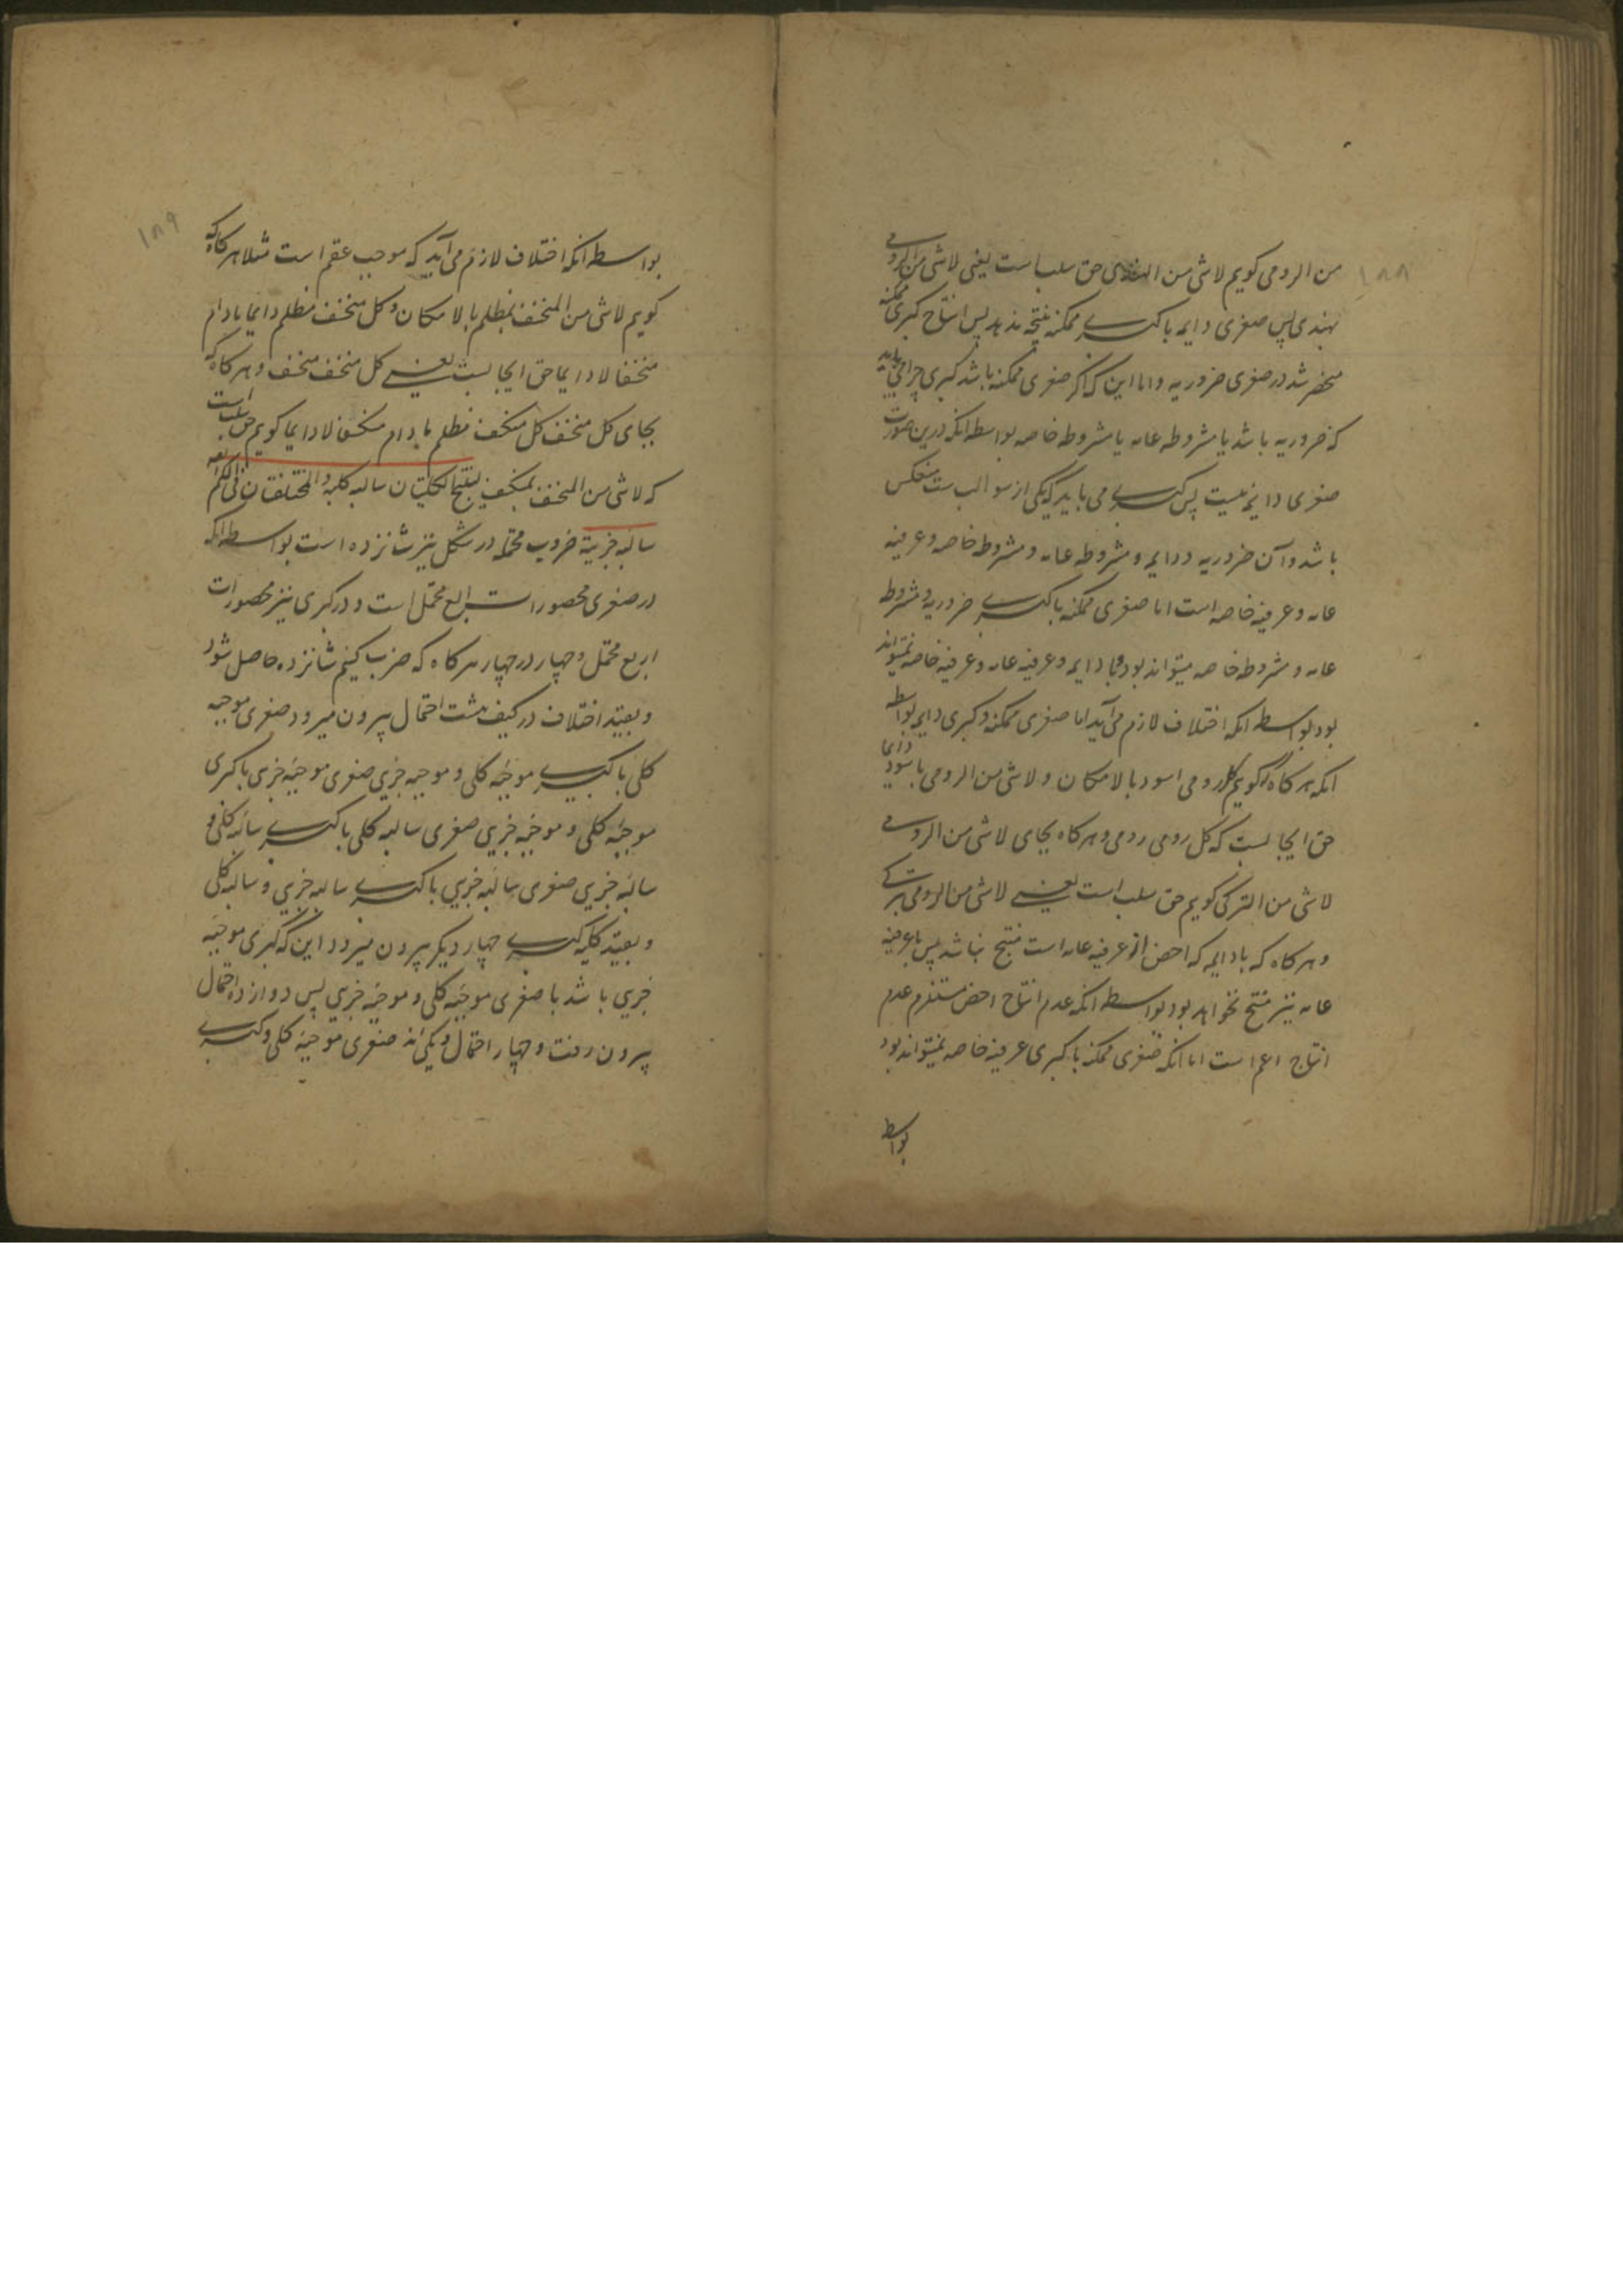 ۱۸۸
من الرومی کویم لاشی من الهندی حق سلب است یعنی لاشی من الرومی
بهندی پس صغری دایمه با کبری ممکنه نتیجه ندهد پس انتاج کبری ممکنه
منحصر شد در صغری ضروریه و اما این که اکر صغری ممکنه باشد کبری چرا می باید
که ضروریه باشد یا مشروطه عامه یا مشروطه خاصه بواسطه انکه درین صورت
صغری دایمه نیست پس کبری می باید که یکی از سوالب ست منعکس
باشد و آن ضروریه و دایمه و مشروطه عامه و مشروطه خاصه و عرفیه
عامه و عرفیه خاصه است اما صغری ممکنه با کبری ضروریه و مشروطه
عامه و مشروطه خاصه میتواند بود و با دایمه و عرفیه عامه و عرفیه خاصه نمیتواند
بود بواسطه انکه اختلاف لازم می آید اما صغری ممکنه و کبری دایمه بواسطه
انکه هرکاه که کویم کل رومی اسود بالامکان و لاشی من الرومی باسود دایما
حق ایجابست که کل رومی رومی و هرکاه بجای لاشی من الرومی
لاشی من الترکی کویم حق سلب است یعنی لاشی من الرومی بترکی
و هرکاه که با دایمه که اخص از عرفیه عامه است منتج نباشد پس با عرفیه
عامه نیز منتج نخواهد بود بواسطه انکه عدم انتاج اخص مستلزم عدم
انتاج اعم است اما انکه صغری ممکنه با کبری عرفیه خاصه نمیتواند بود
بواسطه
۱۸۹
بواسطه انکه اختلاف لازم می آید که موجب عقم است مثلا هرکاه که
کویم لاشی من المنخسف بمظلم بالامکان و کل منخسف مظلم دایما مادام
منخسفا لادایما حق ایجابست یعنی کل منخسف منخسف و هرکاه که
بجای کل منخسف کل منکسف مظلم مادام منکسفا لادایما کویم حق سلب است
که لاشی من المنخسف بمنکسف لینتج الکلیتان سالبه کلیه و المختلفتان فی الکم ایضا
سالبه جزییة ضروب محتمله در شکل نیز شانزده است بواسطه انکه
در صغری محصورات اربع محتمل است و در کبری نیز محصورات
اربع محتمل و چهار در چهار هرکاه که ضرب کنیم شانزده حاصل شود
و بقید اختلاف در کیف هشت احتمال بیرون میرود صغری موجبه
کلی با کبری موجبه کلی و موجبه جزیی صغری موجبه جزیی با کبری
موجبه کلی و موجبه جزیی صغری سالبه کلی با کبری سالبه کلی و
سالبه جزیی صغری سالبه جزیی با کبری سالبه جزیی و سالبه کلی
و بقید کلیه کبری چهار دیکر بیرون میرود این که کبری موجبه
جزیی باشد با صغری موجبه کلی و موجبه جزیی پس دوازده احتمال
بیرون رفت و چهار احتمال ویکی اند صغری موجبه کلی و کبری